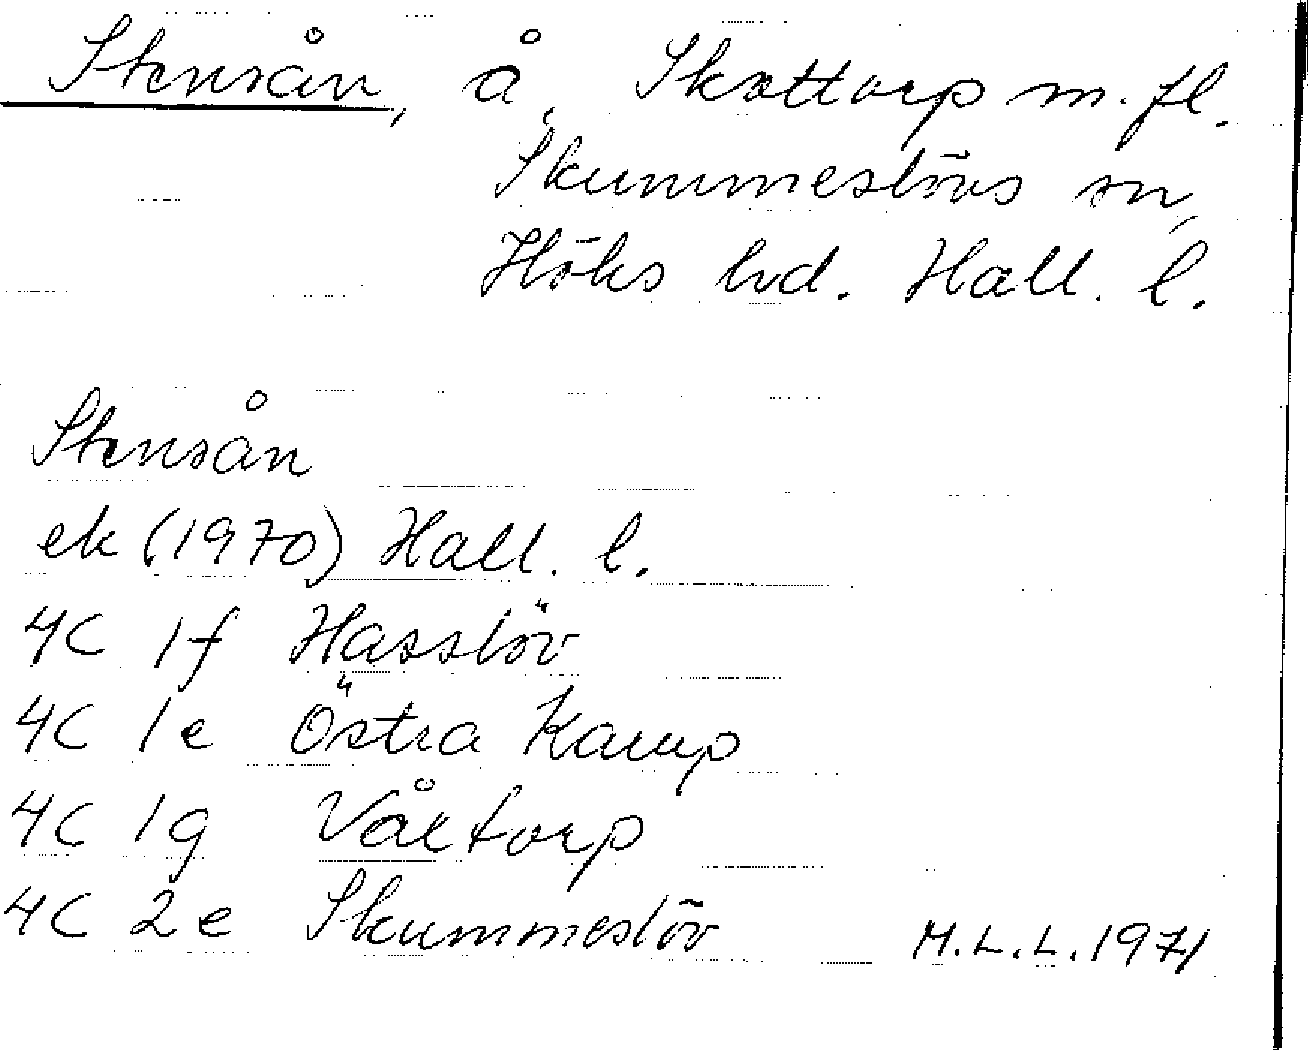 Stensån, å, Skottorp m. fl.
Skummeslövs sn,
Höks hd. Hall. l.
Stensån
ek (1970) Hall. l.
4C 1f Hasslöv
4C 1e Östra Karup
4C 1g Våxtorp
4C 2e Skummeslöv M.L.L. 1971